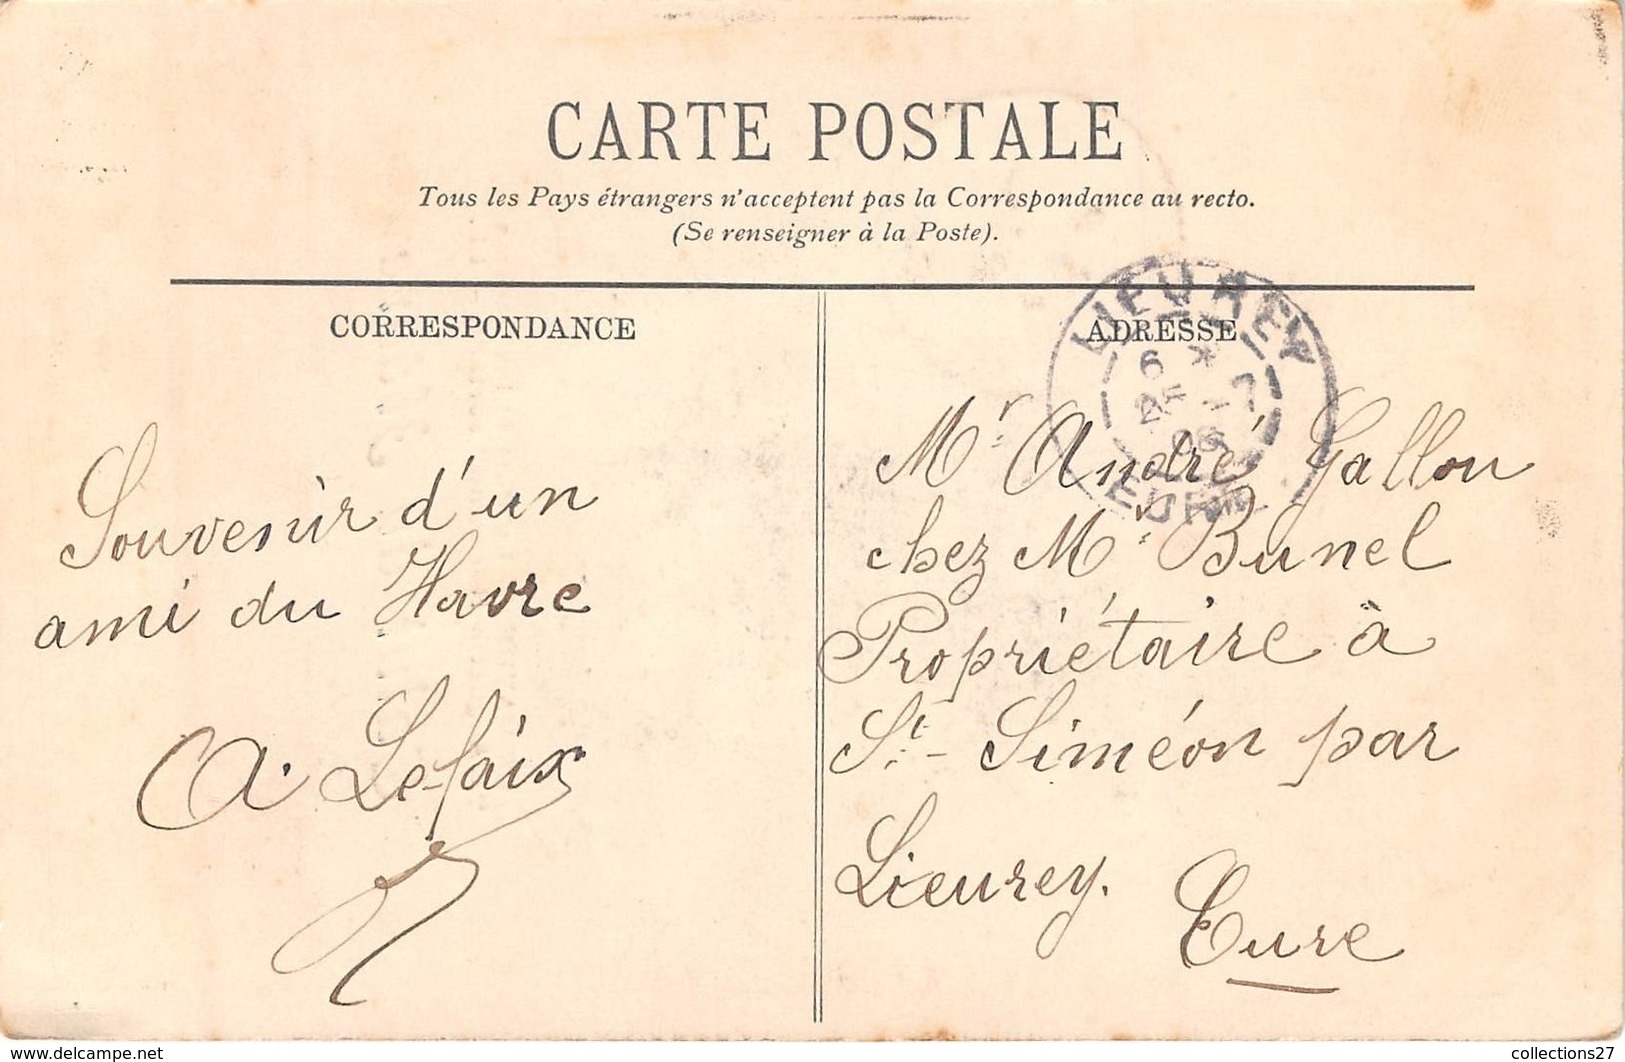 CARTE POSTALE
Tous les Pays étrangers n'acceptent pas la Correspondance au recto.
(Se renseigner à la Poste).
CORRESPONDANCE
Souvenir d'un
ami du Havre
A. Lefaix
ADRESSE
LIEUREY
6 *
25 - 7
06
EURE
Mr André Gallou
chez Mr Bunel
Propriétaire à
St - Siméon par
Lieurey.
Eure
www.delcampe.net
collections27